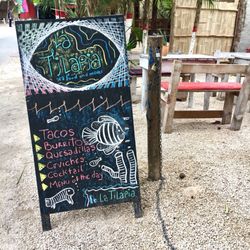 La
Tilapia
Tacos
Burritos
Quesadillas
Ceviches
Cocktail
Menu of the day
La Tilapia